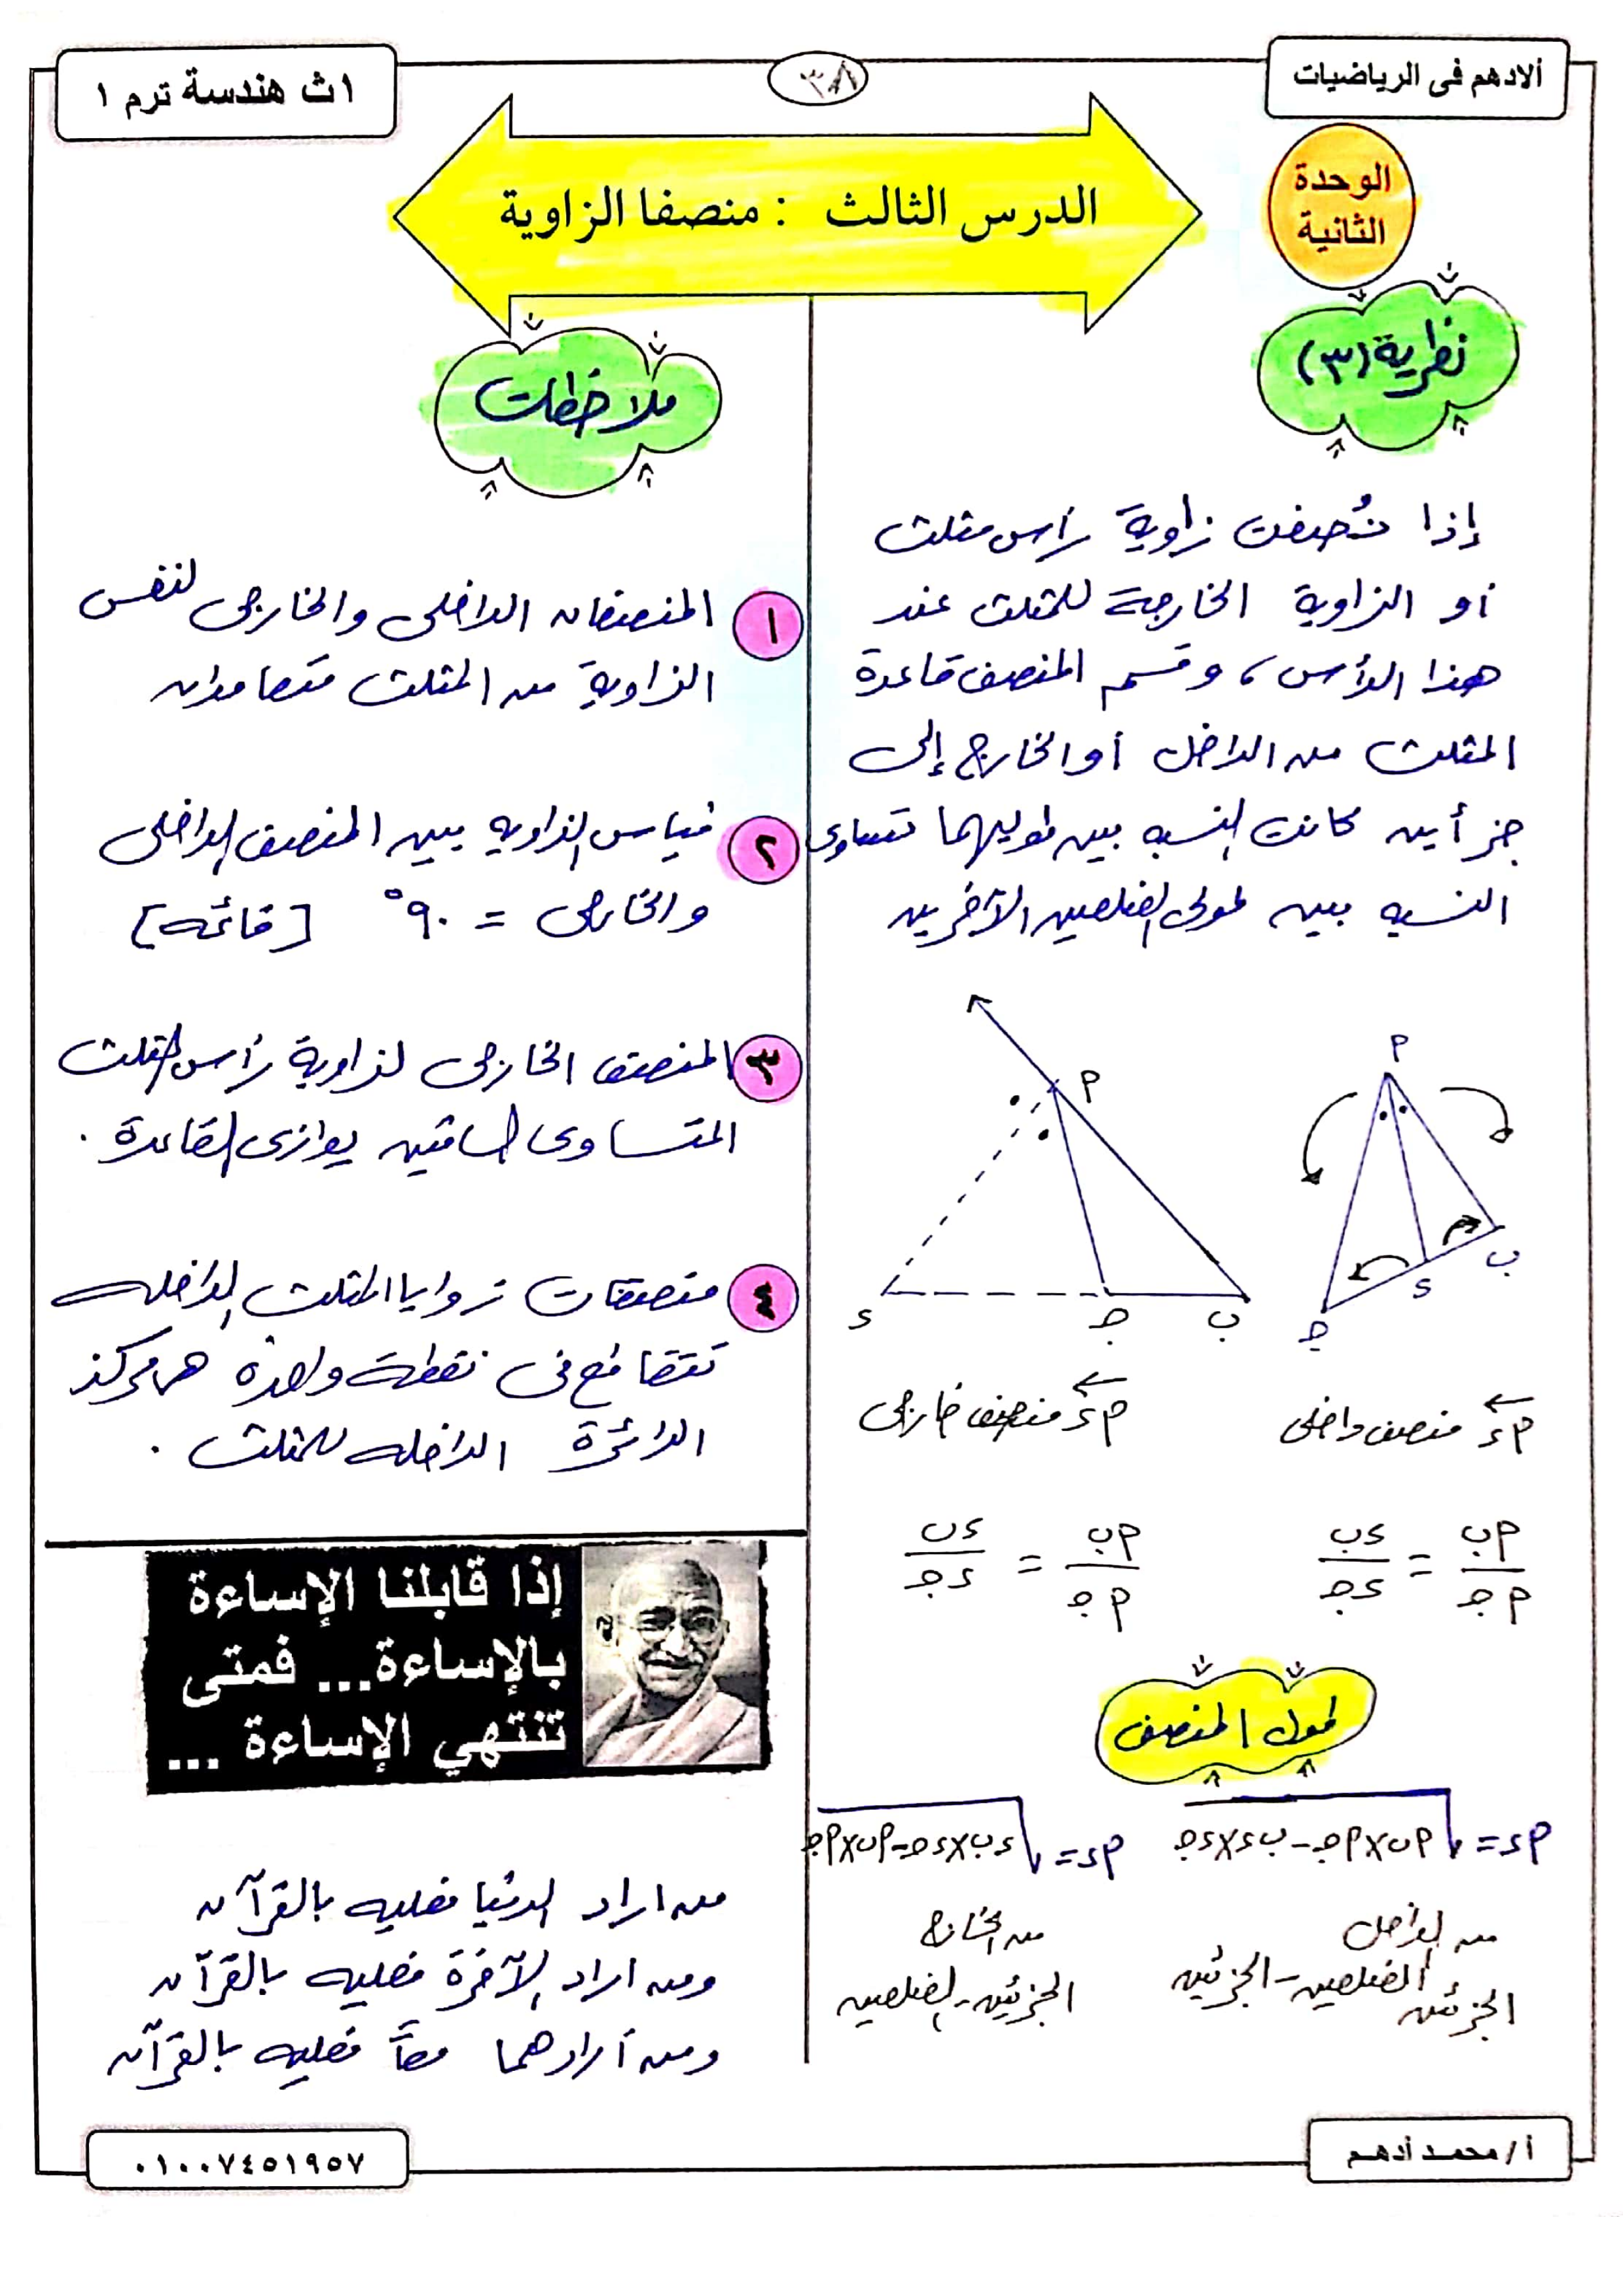 ألادهم فى الرياضيات
٣٨
١ث هندسة ترم ١
الوحدة
الثانية
الدرس الثالث : منصفا الزاوية
نظرية (٣)
إذا نُصفت زاوية رأس مثلث
أو الزاوية الخارجة للمثلث عند
هذا الرأس، وقسم المنصف قاعدة
المثلث من الداخل أو الخارج إلى
جزأين كانت النسبه بين طوليهما تساوى
النسبه بين طولى الضلعين الآخرين
م
ب
ء
جـ
م
ب
جـ
ء
مء منصف داخلى
مء منصف خارجى
مب/مجـ = ءب/ءجـ
مب/مجـ = ءب/ءجـ
طول المنصف
مء = √مب×مجـ - بء×ءجـ
مء = √ءب×ءجـ - مب×مجـ
من الداخل
الضلعين - الجزئين
الجزئين
من الخارج
الجزئين - الضلعين
ملاحظات
١ المنصفان الداخلى والخارجى لنفس
الزاوية من المثلث متعامدان
٢ قياس الزاويه بين المنصف الداخلى
والخارجى = ٩٠° [قائمه]
٣ المنصف الخارجى لزاوية رأس المثلث
المتساوى الساقين يوازى القاعدة .
٤ منصفات زوايا المثلث الداخله
تتقاطع فى نقطة واحدة هى مركز
الدائرة الداخله للمثلث .
إذا قابلنا الإساءة
بالإساءة... فمتى
تنتهي الإساءة ...
من اراد الدنيا فعليه بالقرآن
ومن اراد الآخرة فعليه بالقرآن
ومن أرادهما معاً فعليه بالقرآن
أ/ محمد أدهم
٠١٠٠٧٤٥١٩٥٧